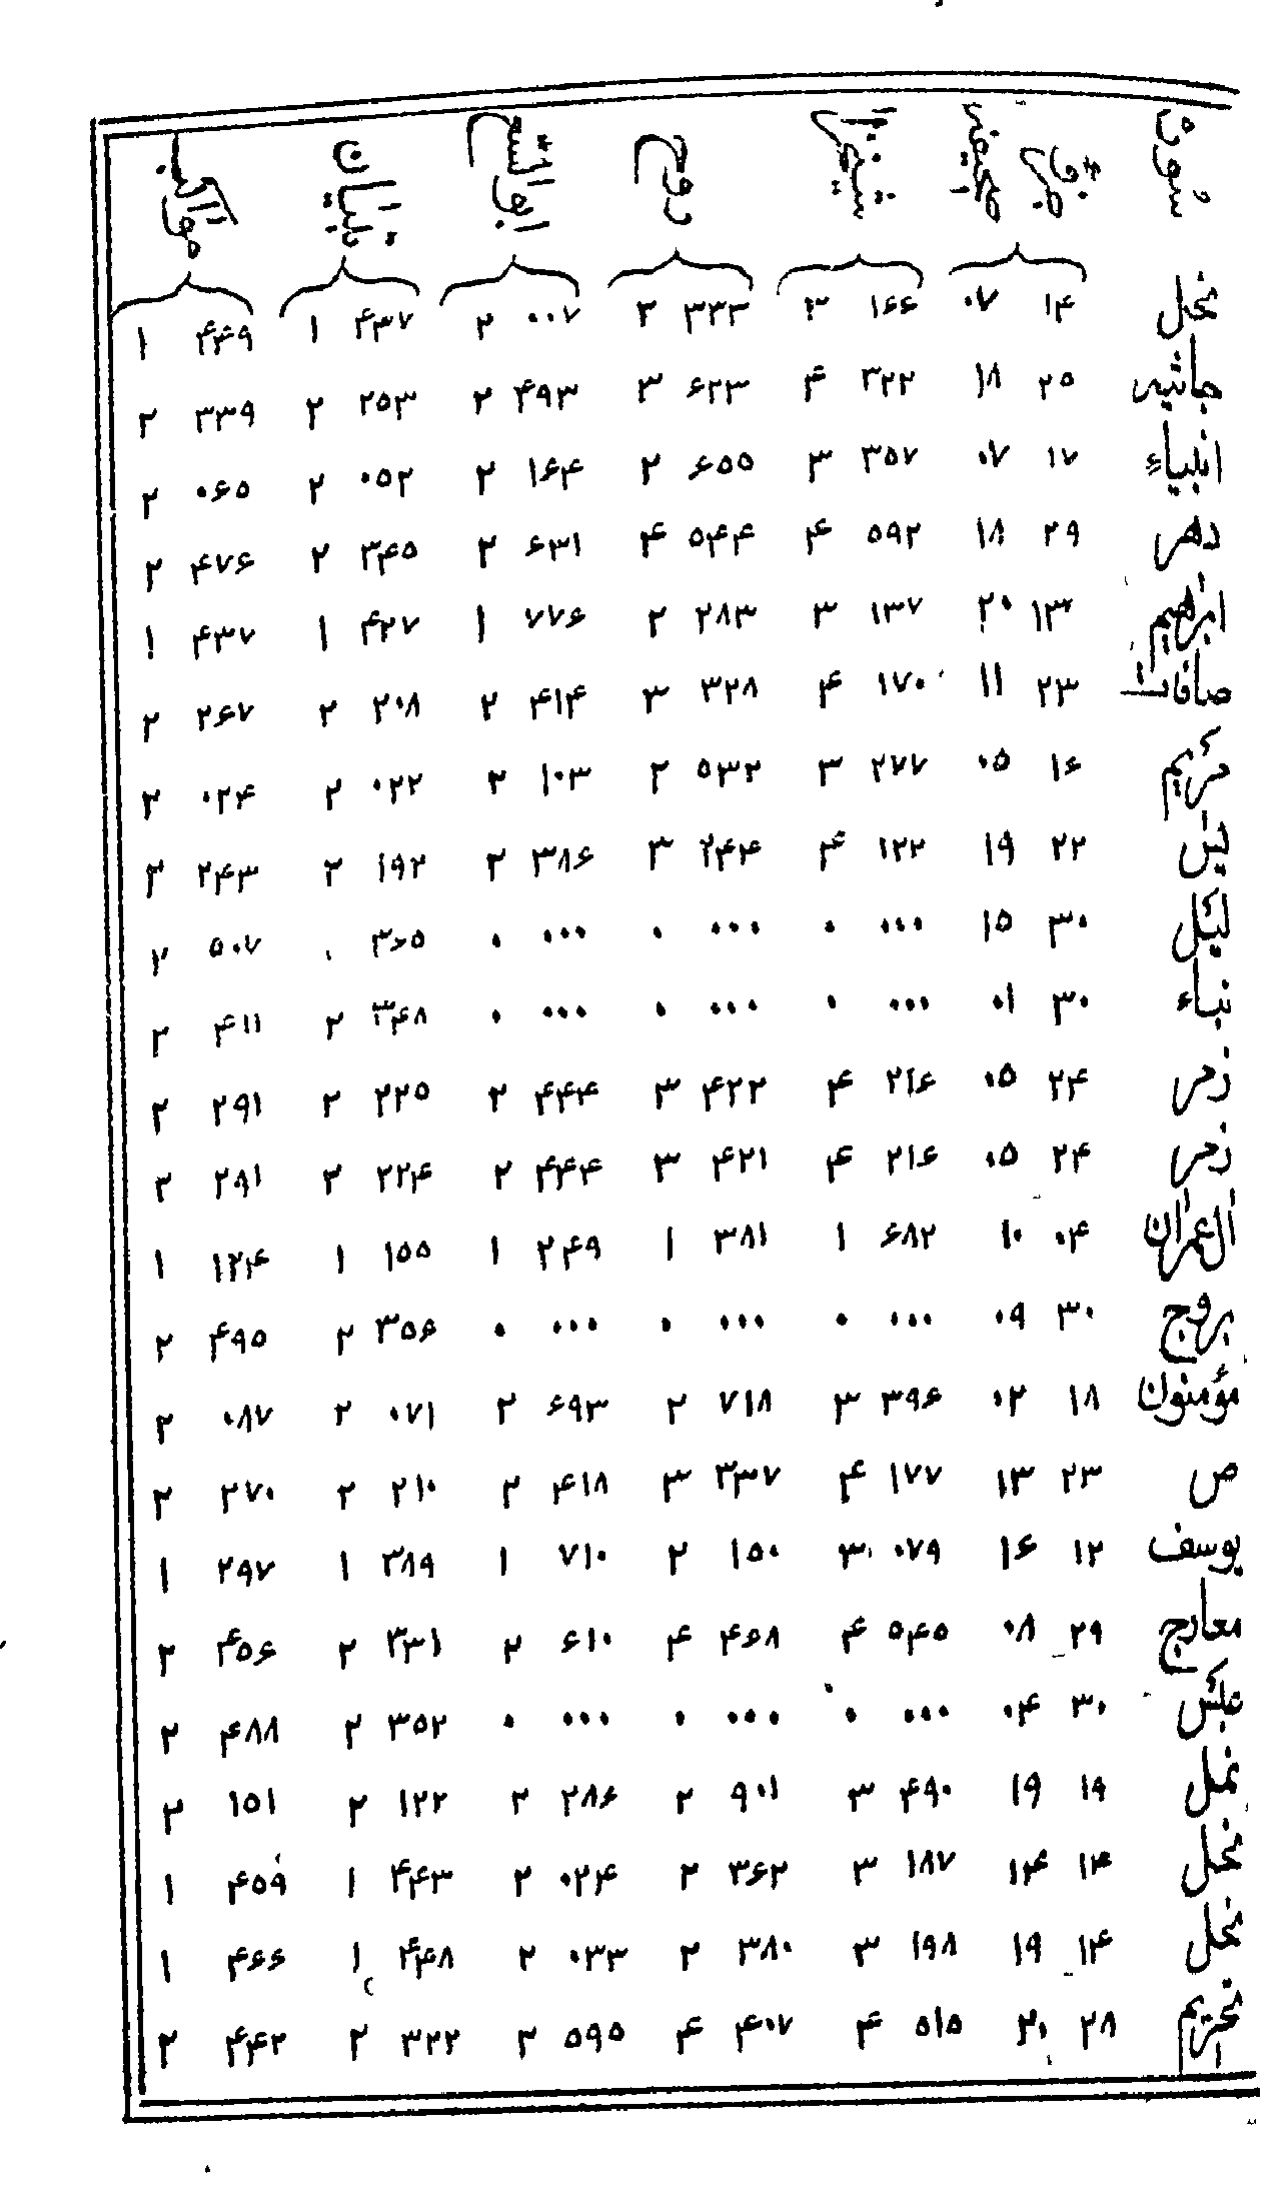 سوره صحیفه ورق شیخ روح ابوالفتح تبیان مواکب
نحل ۱۴ ۰۷ ۱۶۶ ۳ ۳۳۳ ۲ ۰۰۷ ۲ ۴۳۷ ۱ ۴۴۹ ۱
جاثیه ۲۵ ۱۸ ۳۲۲ ۴ ۶۲۳ ۳ ۴۹۳ ۲ ۲۵۳ ۲ ۳۳۹ ۲
انبیاء ۱۷ ۰۷ ۳۵۷ ۳ ۶۵۵ ۲ ۱۶۴ ۲ ۰۵۲ ۲ ۰۶۵ ۲
دهر ۲۹ ۱۸ ۵۹۲ ۴ ۵۴۴ ۴ ۶۳۱ ۲ ۳۴۵ ۲ ۴۷۶ ۲
ابراهیم ۱۳ ۲۰ ۱۳۷ ۳ ۲۸۳ ۲ ۷۷۶ ۱ ۴۲۷ ۱ ۴۳۷ ۱
صافات ۲۳ ۱۱ ۱۷۰ ۴ ۳۲۸ ۳ ۴۱۴ ۲ ۲۰۸ ۲ ۲۶۷ ۲
مریم ۱۶ ۰۵ ۲۷۷ ۳ ۵۳۲ ۲ ۱۰۳ ۲ ۰۲۲ ۲ ۰۲۴ ۲
یس ۲۲ ۱۹ ۱۲۲ ۴ ۲۴۴ ۳ ۳۸۶ ۲ ۱۹۲ ۲ ۲۴۳ ۲
لیل ۳۰ ۱۵ ۰۰۰ ۰ ۰۰۰ ۰ ۰۰۰ ۰ ۳۶۵ ۰ ۵۰۷ ۲
نباء ۳۰ ۰۱ ۰۰۰ ۰ ۰۰۰ ۰ ۰۰۰ ۰ ۳۴۸ ۲ ۴۱۱ ۲
زمر ۲۴ ۰۵ ۲۱۶ ۴ ۴۲۲ ۳ ۴۴۴ ۲ ۲۲۵ ۲ ۲۹۱ ۲
زمر ۲۴ ۰۵ ۲۱۶ ۴ ۴۲۱ ۳ ۴۴۴ ۲ ۲۲۴ ۲ ۲۹۱ ۲
ال عمران ۰۴ ۱۰ ۶۸۲ ۱ ۳۸۱ ۱ ۲۴۹ ۱ ۱۵۵ ۱ ۱۲۴ ۱
بروج ۳۰ ۰۹ ۰۰۰ ۰ ۰۰۰ ۰ ۰۰۰ ۰ ۳۵۶ ۲ ۴۹۵ ۲
مؤمنون ۱۸ ۰۲ ۳۹۶ ۳ ۷۱۸ ۲ ۶۹۳ ۲ ۰۷۱ ۲ ۰۸۷ ۲
ص ۲۳ ۱۳ ۱۷۷ ۴ ۳۳۷ ۳ ۴۱۸ ۲ ۲۱۰ ۲ ۲۷۰ ۲
یوسف ۱۲ ۱۶ ۰۷۹ ۳ ۱۵۰ ۲ ۷۱۰ ۱ ۳۸۹ ۱ ۲۹۷ ۱
معارج ۲۹ ۰۸ ۵۴۵ ۴ ۴۶۸ ۴ ۶۱۰ ۲ ۳۳۱ ۲ ۴۵۶ ۲
عبس ۳۰ ۰۴ ۰۰۰ ۰ ۰۰۰ ۰ ۰۰۰ ۰ ۳۵۲ ۲ ۴۸۸ ۲
نمل ۱۹ ۱۹ ۴۹۰ ۳ ۹۰۱ ۲ ۲۸۶ ۲ ۱۲۲ ۲ ۱۵۱ ۲
نحل ۱۴ ۱۴ ۱۸۷ ۳ ۳۶۲ ۲ ۰۲۴ ۲ ۴۴۳ ۱ ۴۵۹ ۱
نحل ۱۴ ۱۹ ۱۹۸ ۳ ۳۸۰ ۲ ۰۳۳ ۲ ۴۴۸ ۱ ۴۶۶ ۱
تحریم ۲۸ ۲۰ ۵۱۵ ۴ ۴۰۷ ۴ ۵۹۵ ۲ ۳۲۲ ۲ ۴۴۲ ۲